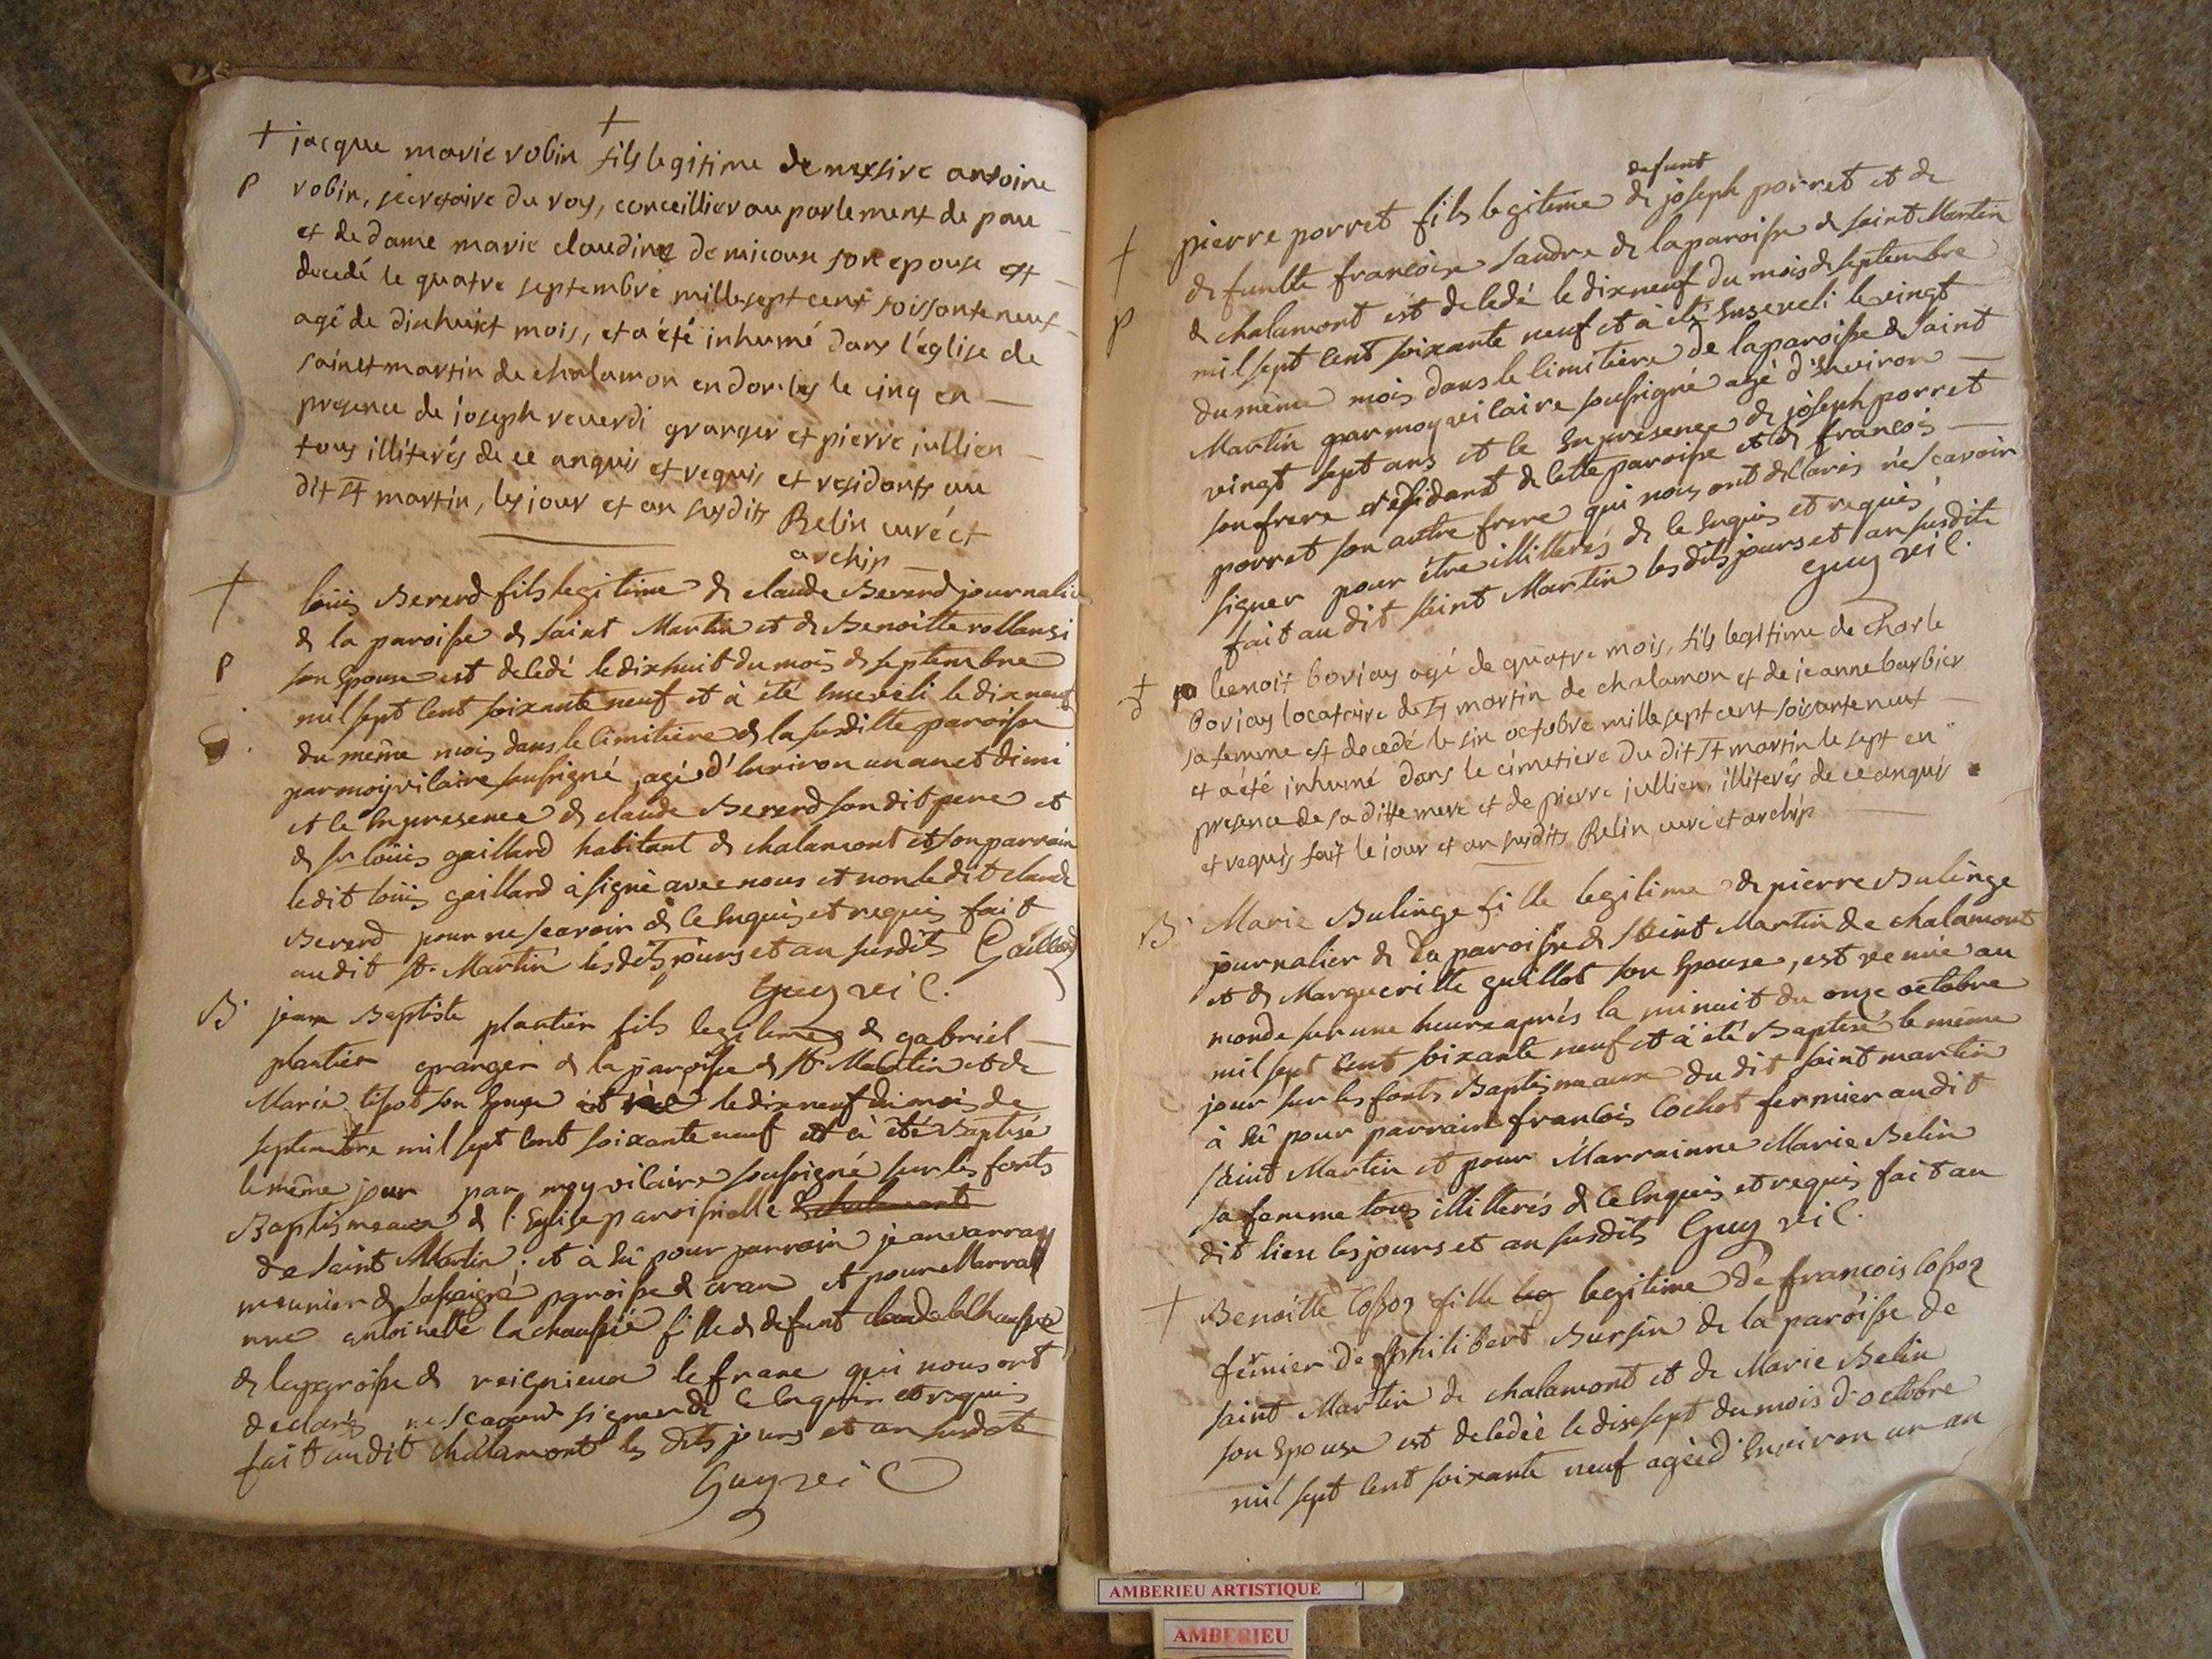 +
+ jacque marie robin fils legitime de messire antoine
p robin, secretaire du roy, conceillier au parlement de pau
et de dame marie claudine de micoux son epouse est
decedé le quatre septembre mille sept cent soissante neuf
agé de dixhuict mois, et a été inhumé dans l'église de
sainct martin de chalamon en dombes le cinq en
presence de joseph reverdi granger et pierre jullien
tous illiterés de ce anquis et requis et residants au
dit st martin, les jour et an susdits Relin curé et
archip
+ loüis Bererd fils legitime de claude Bererd journalie
de la paroisse de saint Martin et de Benoitte rollansi
p son Epouse est decedé le dixhuit du mois de septembre
mil sept cent soixante neuf et à été Enseveli le dixneuf
du même mois dans le cimitière de la susditte paroisse
par moy vicaire soussigné, agé d'Environ un an et dimi
et ce En presence de claude Bererd son dit pere et
de sr loüis gaillard habitant de chalamont et son parrain
ledit loüis gaillard à signé avec nous et non ledit claude
Bererd pour ne scavoir de ce Enquis et requis fait
audit st. Martin les dits jours et an susdits Gaillard
Guy vic.
B. jean Baptiste plantier fils legitime de gabriel
plantier granger de la paroisse de st. Martin et de
Marie tisot son Epouse est né le dixneuf du mois de
septembre mil sept cent soixante neuf et à été Baptisé
le même jour par moy vicaire soussigné sur les fonts
Baptismeaux de l'Eglise paroissielle de chalamont
de saint Martin, et à Eû pour parrain jean varray
meunier de paroisse de cran et pour Marrai
nne antoinette la chaussié fille de defunt claude lachaussie
de la paroisse de reignieux le franc qui nous ont
declaréz ne scavoir signer de ce Enquis et requis
fait audit chalamont les dits jours et an susdits
Guy vic
defunt
+ pierre porret fils legitime de joseph porret et de
defuntte francoise sandre de la paroisse de saint Martin
p de chalamont est decedé le dixneuf du mois de septembre
mil sept cent soixante neuf et à été Enseveli le vingt
du même mois dans le cimitière de la paroisse de saint
Martin par moy vicaire soussigné agé d'Environ
vingt sept ans et ce En presence de joseph porret
son frere résidant de cette paroisse et de francois
porret son autre frere qui nous ont déclarés ne scavoir
signer pour être illitterés de ce Enquis et requis
fait au dit saint Martin les dits jours et an susdits
Guy vic.
+ benoit boviay agé de quatre mois, fils legitime de charle
boviay locataire de st martin de chalamon et de jeanne barbier
sa femme est decedé le six octobre mille sept cent soisante neuf
et a été inhumé dans le cimetiere du dit st martin le sept en
presence de sa ditte mere et de pierre jullien, illiterés de ce anquis
et requis fait le jour et an susdits Relin curé et archip
B. Marie Bulinge fille legitime de pierre Bulinge
journalier de la paroisse de saint Martin de chalamont
et de Margueritte guillot son Epouse, est venüe au
monde sur une heure aprés la minuit du onze octobre
mil sept cent soixante neuf et à été Baptisé le même
jour sur les fonts Baptismeaux du dit saint martin
à Eû pour parrain francois Cochet fermier audit
saint Martin et pour Marrainne Marie Belin
sa femme tous illitterés de ce Enquis et requis fait au
dit lieu les jours et an susdits Guy vic.
+ Benoitte Cossoz fille leg legitime de francois Cossoz
fermier de philibert Bursin de la paroisse de
saint Martin de chalamont et de Marie Belin
son Epouse est decedée le dixsept du mois d'octobre
mil sept cent soixante neuf agée d'Environ un an
AMBERIEU ARTISTIQUE
AMBERIEU